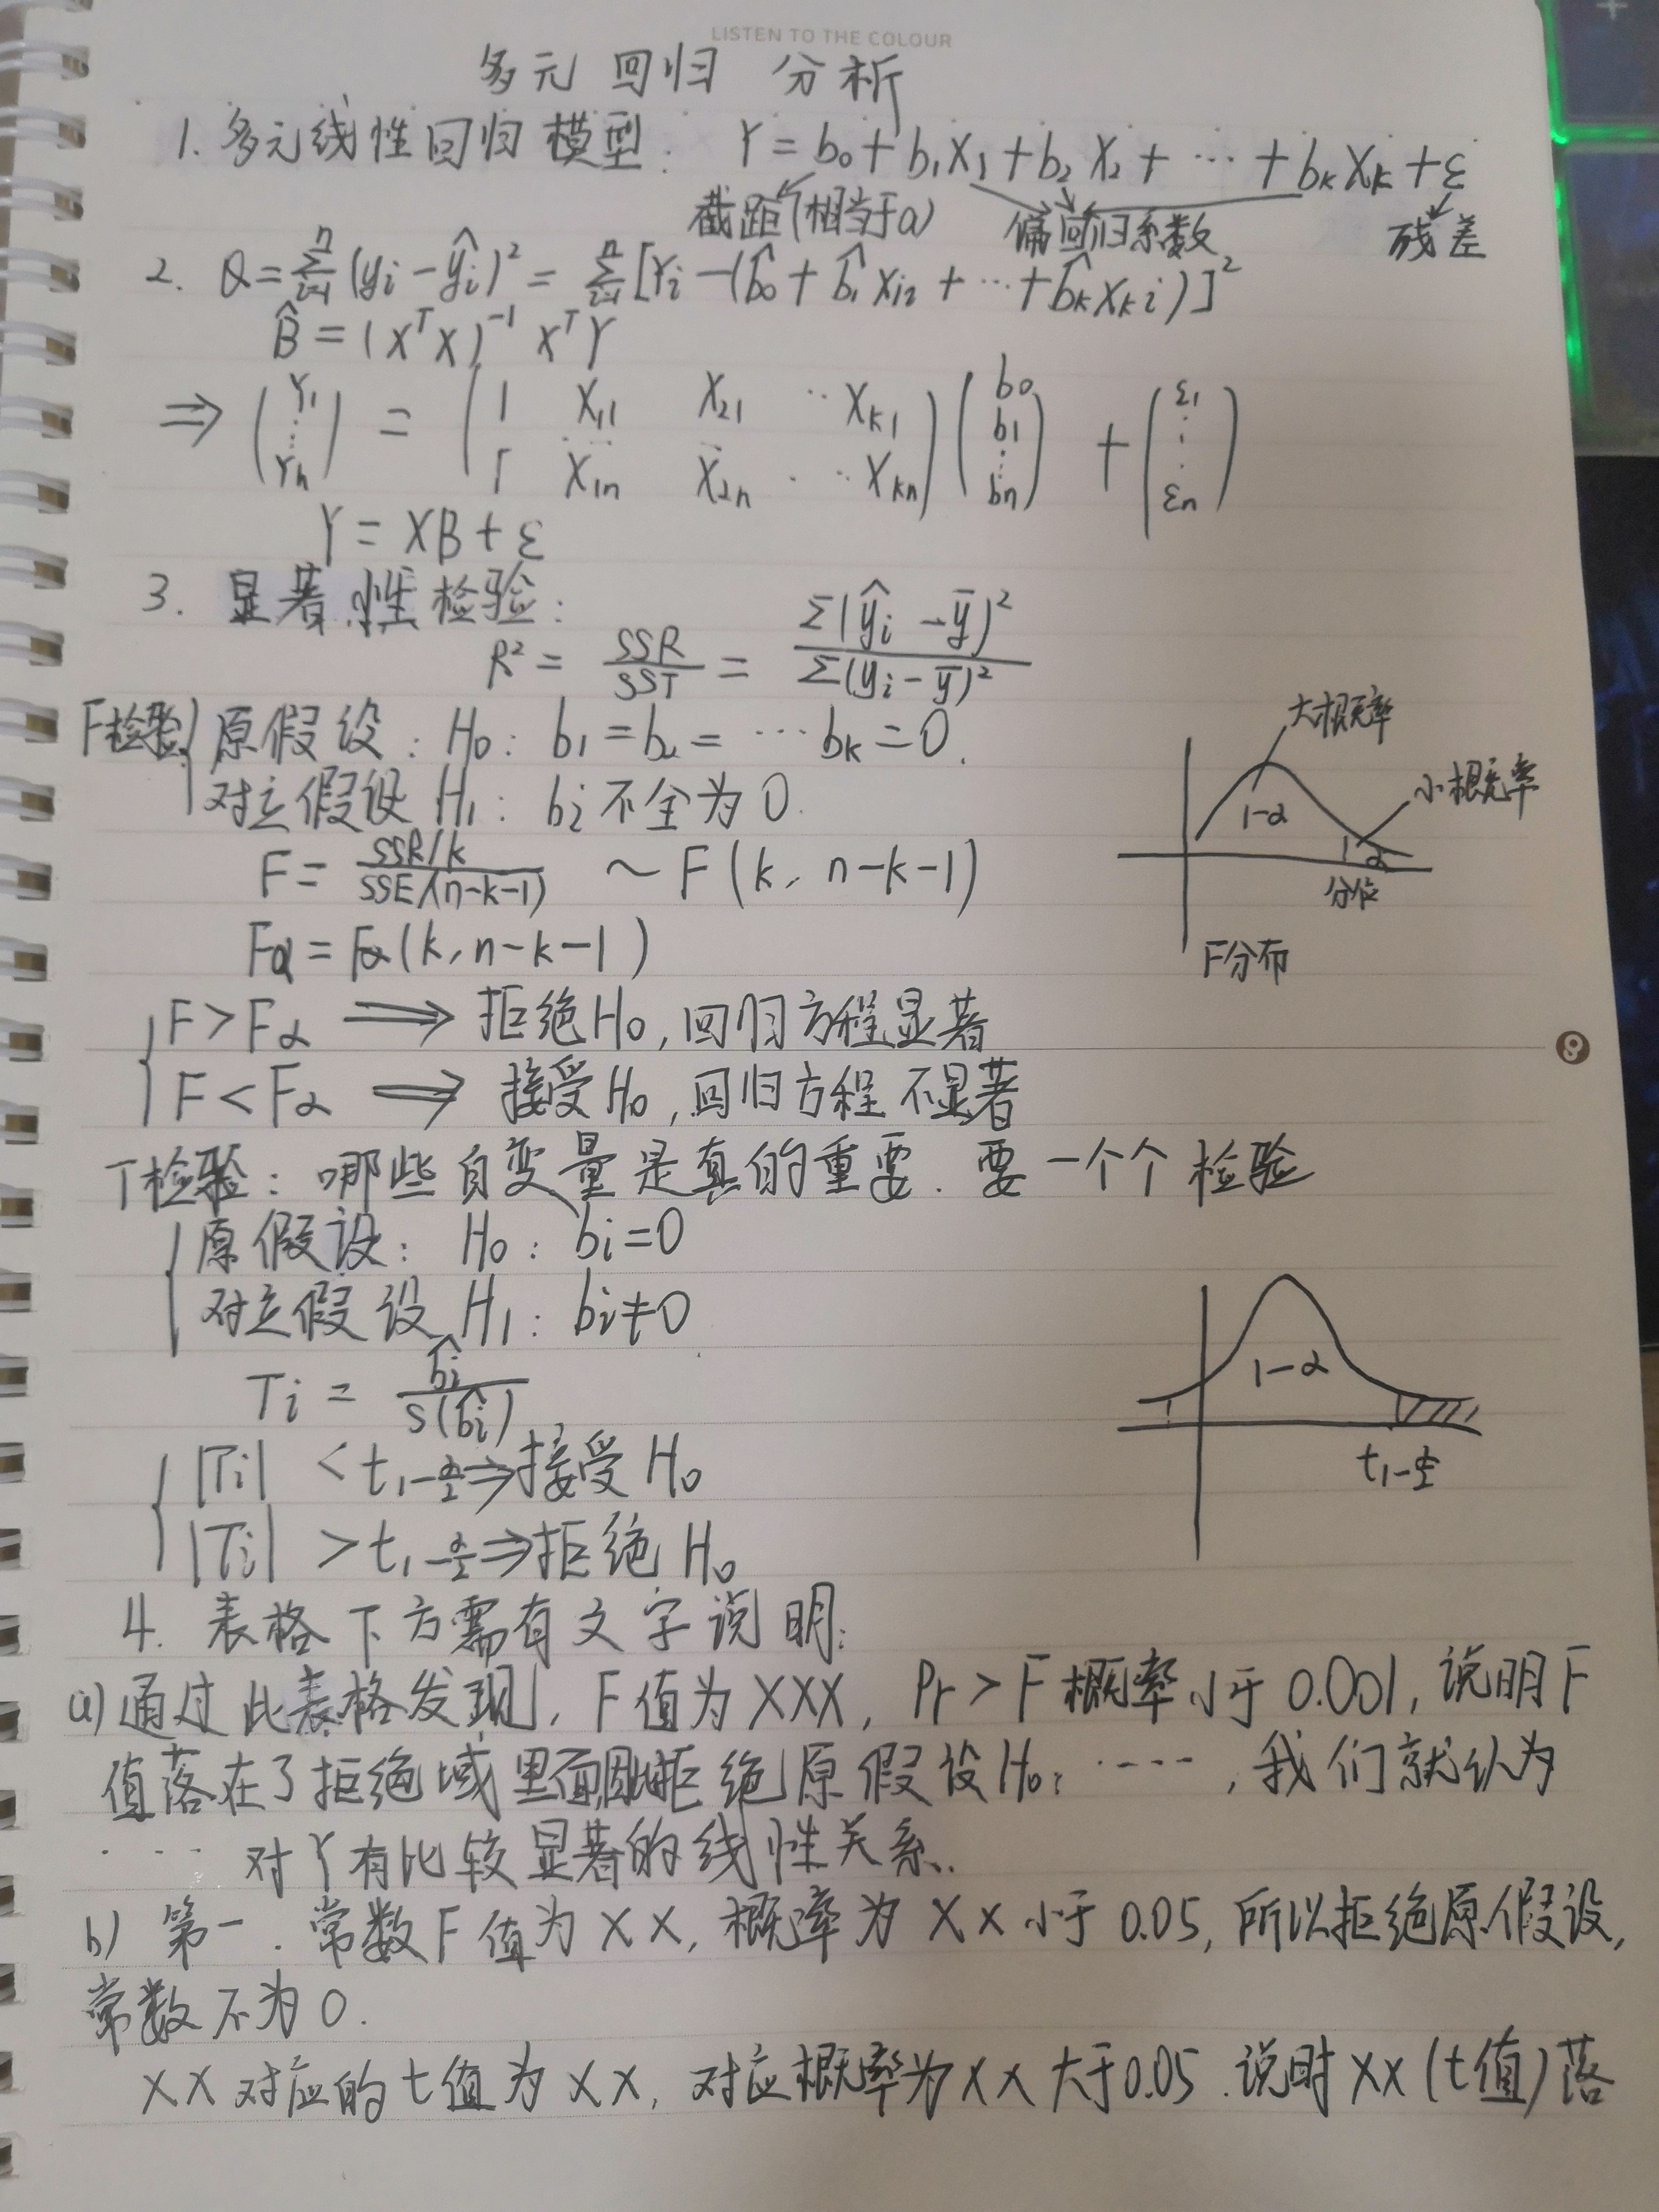 LISTEN TO THE COLOUR
多元回归 分析
1. 多元线性回归模型: Y = b₀ + b₁X₁ + b₂X₂ + ⋯ + bₖXₖ + ε
截距(相当于a) 偏回归系数 残差
2. Q = Σⁿᵢ₌₁ (yᵢ - ŷᵢ)² = Σⁿᵢ₌₁ [Yᵢ - (b̂₀ + b̂₁Xᵢ₂ + ⋯ + b̂ₖXₖᵢ)]²
B̂ = (XᵀX)⁻¹ XᵀY
⇒ (Y₁ ⋮ Yₙ) = (1 X₁₁ X₂₁ ⋯ Xₖ₁
1 X₁ₙ X₂ₙ ⋯ Xₖₙ) (b₀ b₁ ⋮ bₙ) + (ε₁ ⋮ εₙ)
Y = XB + ε
3. 显著性检验:
R² = SSR/SST = Σ(ŷᵢ - ȳ)² / Σ(yᵢ - ȳ)²
F检验 { 原假设: H₀: b₁ = b₂ = ⋯ bₖ = 0.
对立假设 H₁: bᵢ不全为0.
大概率
小概率
1-α
α
分位
F分布
F = (SSR/k) / (SSE/(n-k-1)) ~ F(k, n-k-1)
Fα = Fα(k, n-k-1)
F > Fα ⇒ 拒绝H₀, 回归方程显著
F < Fα ⇒ 接受H₀, 回归方程不显著
T检验: 哪些自变量是真的重要. 要一个个检验
原假设: H₀: bᵢ=0
对立假设 H₁: bᵢ≠0
Tᵢ = b̂ᵢ / s(b̂ᵢ)
1-α
t₁₋α/₂
|Tᵢ| < t₁₋α/₂ ⇒ 接受H₀
|Tᵢ| > t₁₋α/₂ ⇒ 拒绝H₀
4. 表格下方需有文字说明:
a) 通过此表格发现, F值为XXX, Pr > F 概率小于0.001, 说明F
值落在了拒绝域里面因此拒绝原假设H₀: ⋯⋯, 我们就认为
⋯⋯ 对Y有比较显著的线性关系.
b) 第一. 常数F值为XX, 概率为XX小于0.05, 所以拒绝原假设,
常数不为0.
XX对应的t值为XX, 对应概率为XX大于0.05. 说时XX(t值)落